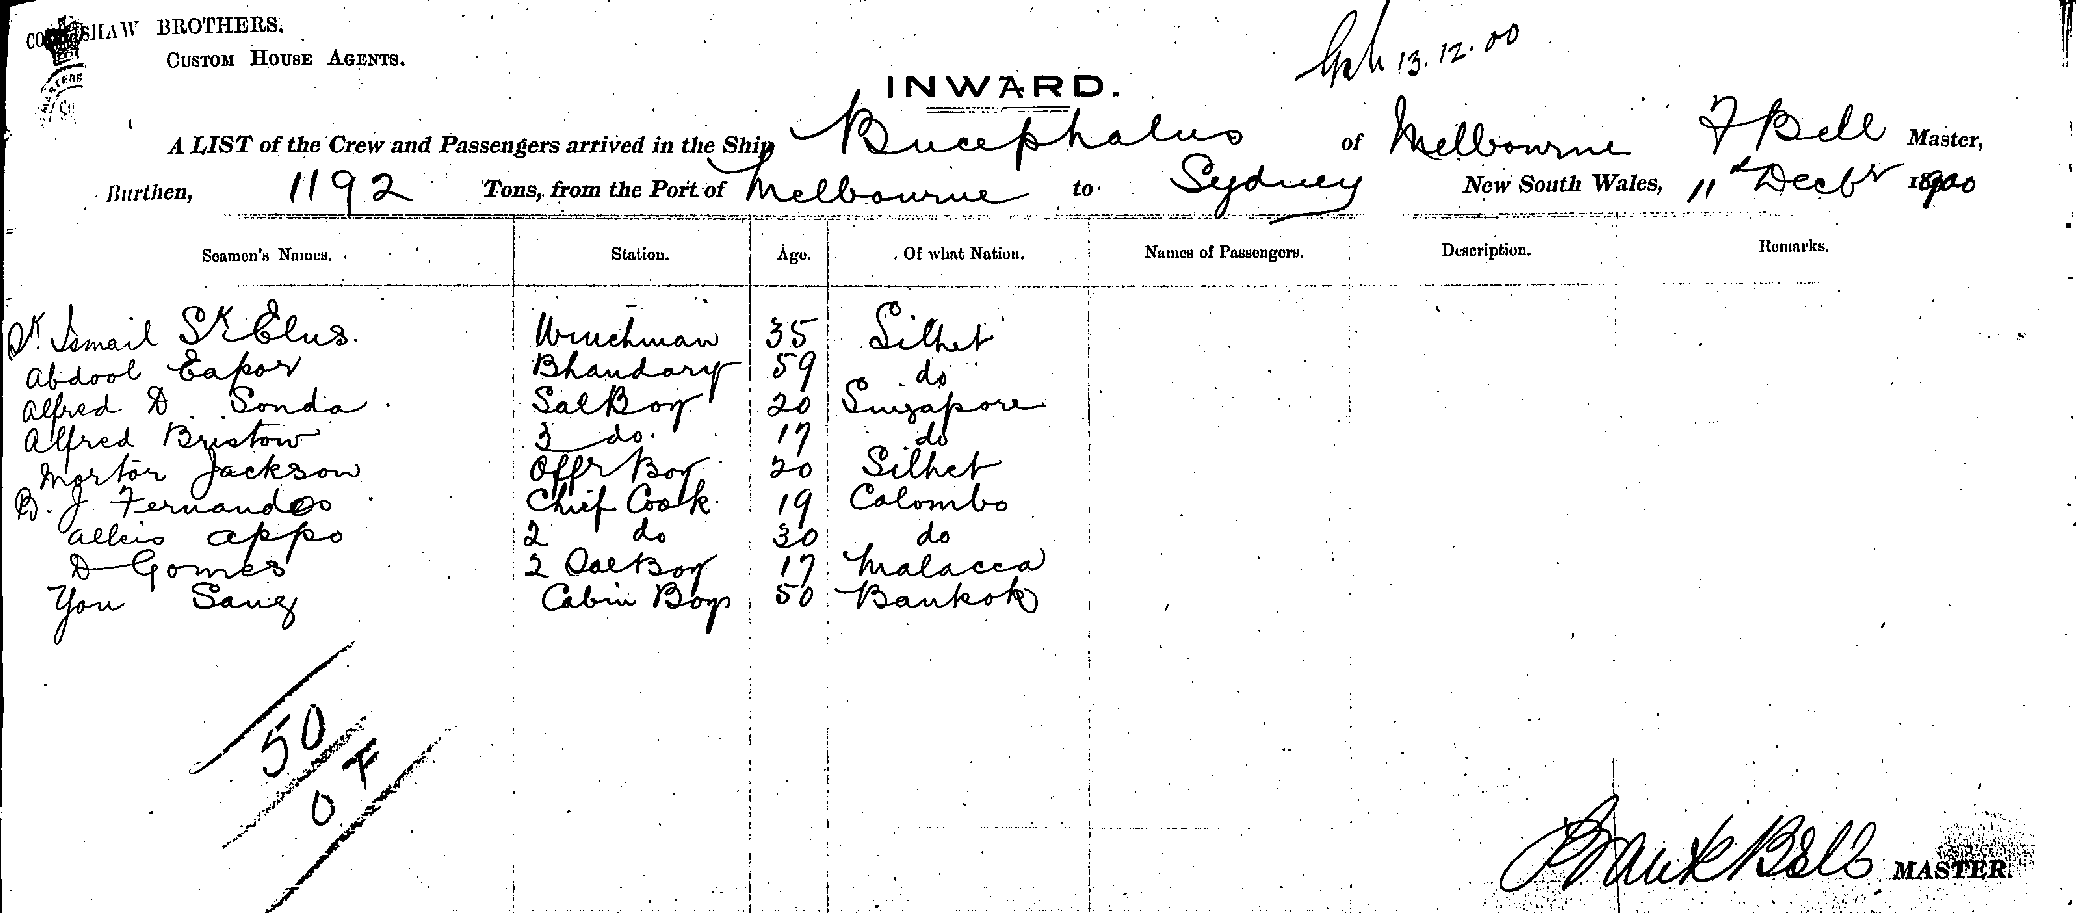 BROTHERS.
CUSTOM HOUSE AGENTS.
13.12.00
INWARD.
A LIST of the Crew and Passengers arrived in the Ship Bucephalus of Melbourne F Bell Master,
Burthen, 1192 Tons, from the Port of Melbourne to Sydney New South Wales, 11th Decbr 1900
Seamen's Names. Station. Age. Of what Nation. Names of Passengers. Description. Remarks.
Sk. Ismail Sk Elus. Winchman 35 Silhet
Abdool Eapor Bhandary 59 do
Alfred D Sonda Sal Boy 20 Singapore
Alfred Bristow 3 do. 17 do
Mortor Jackson Offr Boy 20 Silhet
B. J Fernandes Chief Cook 19 Colombo
Appo 2 do 30 do
D Gomes 2 Sal Boy 17 Malacca
You Sang Cabin Boy 50 Bankok
50
0 F
Frank Bell MASTER.